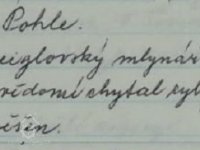 Pohle.
eiglovský mlynár
vědomí chytal ryb
ěšen.